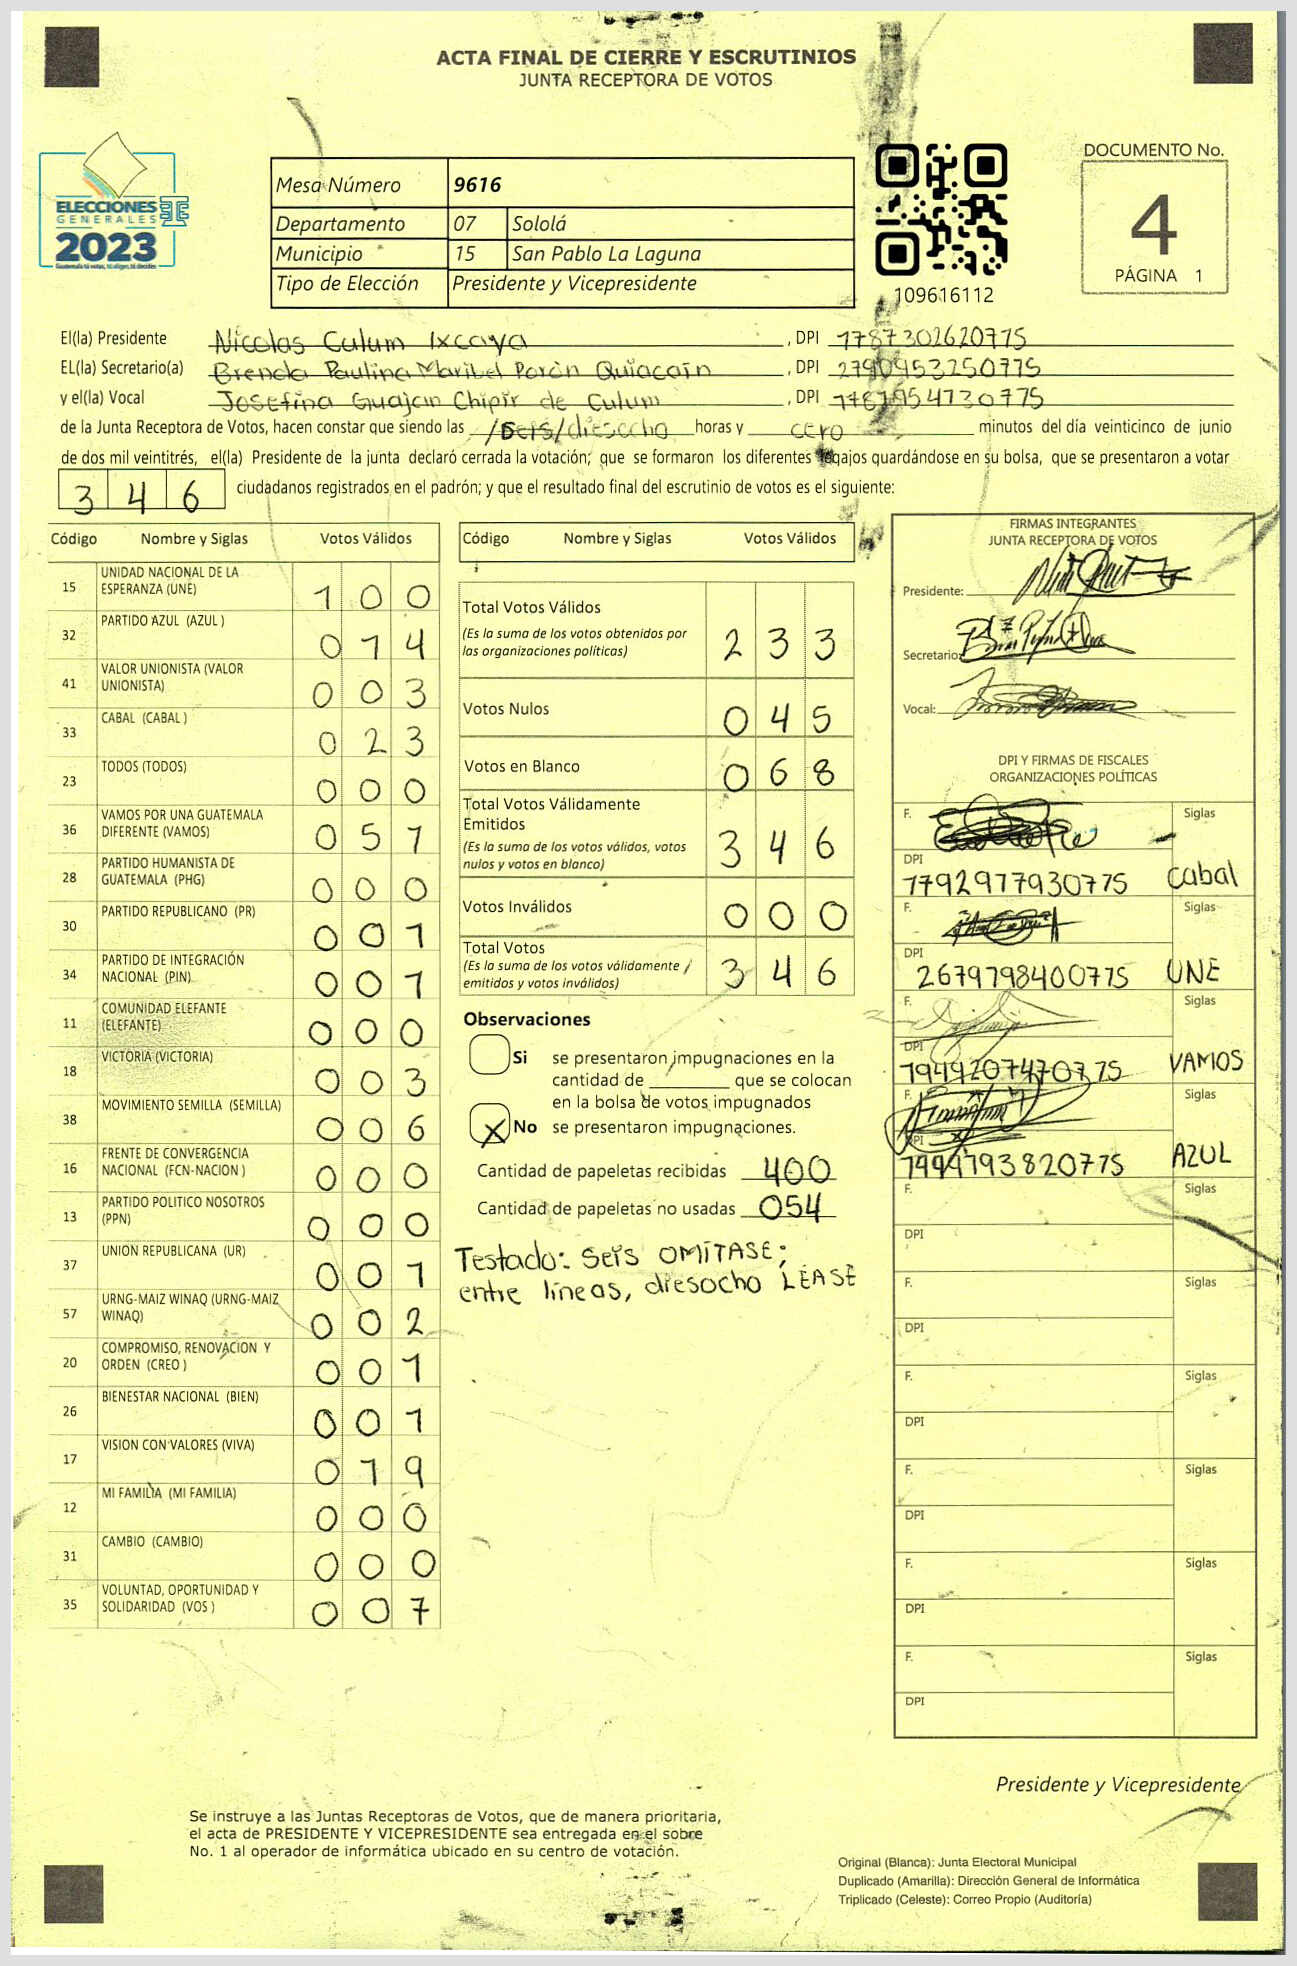 ACTA FINAL DE CIERRE Y ESCRUTINIOS
JUNTA RECEPTORA DE VOTOS
ELECCIONES
GENERALES
2023
Guatemala tú votas, tú eliges, tú decides
Mesa Número 9616
Departamento 07 Sololá
Municipio 15 San Pablo La Laguna
Tipo de Elección Presidente y Vicepresidente
109616112
DOCUMENTO No.
4
PÁGINA 1
El(la) Presidente Nicolas Culum Ixcaya, DPI 1787302620775
EL(la) Secretario(a) Brenda Paulina Maribel Porón Quiacaín, DPI 2790953250775
y el(la) Vocal Josefina Guajan Chipir de Culum, DPI 1787954730775
de la Junta Receptora de Votos, hacen constar que siendo las /seis/diesocho horas y cero minutos del día veinticinco de junio
de dos mil veintitrés, el(la) Presidente de la junta declaró cerrada la votación; que se formaron los diferentes legajos guardándose en su bolsa, que se presentaron a votar
346 ciudadanos registrados en el padrón; y que el resultado final del escrutinio de votos es el siguiente:
Código Nombre y Siglas Votos Válidos
15 UNIDAD NACIONAL DE LA ESPERANZA (UNE) 100
32 PARTIDO AZUL (AZUL ) 014
41 VALOR UNIONISTA (VALOR UNIONISTA) 003
33 CABAL (CABAL ) 023
23 TODOS (TODOS) 000
36 VAMOS POR UNA GUATEMALA DIFERENTE (VAMOS) 051
28 PARTIDO HUMANISTA DE GUATEMALA (PHG) 000
30 PARTIDO REPUBLICANO (PR) 001
34 PARTIDO DE INTEGRACIÓN NACIONAL (PIN) 001
11 COMUNIDAD ELEFANTE (ELEFANTE) 000
18 VICTORIA (VICTORIA) 003
38 MOVIMIENTO SEMILLA (SEMILLA) 006
16 FRENTE DE CONVERGENCIA NACIONAL (FCN-NACION ) 000
13 PARTIDO POLITICO NOSOTROS (PPN) 000
37 UNION REPUBLICANA (UR) 001
57 URNG-MAIZ WINAQ (URNG-MAIZ WINAQ) 002
20 COMPROMISO, RENOVACION Y ORDEN (CREO ) 001
26 BIENESTAR NACIONAL (BIEN) 001
17 VISION CON VALORES (VIVA) 019
12 MI FAMILIA (MI FAMILIA) 000
31 CAMBIO (CAMBIO) 000
35 VOLUNTAD, OPORTUNIDAD Y SOLIDARIDAD (VOS ) 007
Código Nombre y Siglas Votos Válidos
Total Votos Válidos
(Es la suma de los votos obtenidos por
las organizaciones políticas) 233
Votos Nulos 045
Votos en Blanco 068
Total Votos Válidamente
Emitidos
(Es la suma de los votos válidos, votos
nulos y votos en blanco) 346
Votos Inválidos 000
Total Votos
(Es la suma de los votos válidamente
emitidos y votos inválidos) 346
Observaciones
Si se presentaron impugnaciones en la
cantidad de ________ que se colocan
en la bolsa de votos impugnados
X No se presentaron impugnaciones.
Cantidad de papeletas recibidas 400
Cantidad de papeletas no usadas 054
Testado: seis OMÍTASE;
entre líneas, diesocho LEASE
FIRMAS INTEGRANTES
JUNTA RECEPTORA DE VOTOS
Presidente:
Secretario:
Vocal:
DPI Y FIRMAS DE FISCALES
ORGANIZACIONES POLÍTICAS
F. Siglas
DPI
1792977930775 Cabal
F. Siglas
DPI
2679798400775 UNE
F. Siglas
DPI
1949207470775 VAMOS
F. Siglas
DPI
1994793820775 AZUL
F. Siglas
DPI
F. Siglas
DPI
F. Siglas
DPI
F. Siglas
DPI
F. Siglas
DPI
F. Siglas
DPI
Presidente y Vicepresidente
Se instruye a las Juntas Receptoras de Votos, que de manera prioritaria,
el acta de PRESIDENTE Y VICEPRESIDENTE sea entregada en el sobre
No. 1 al operador de informática ubicado en su centro de votación.
Original (Blanca): Junta Electoral Municipal
Duplicado (Amarilla): Dirección General de Informática
Triplicado (Celeste): Correo Propio (Auditoría)